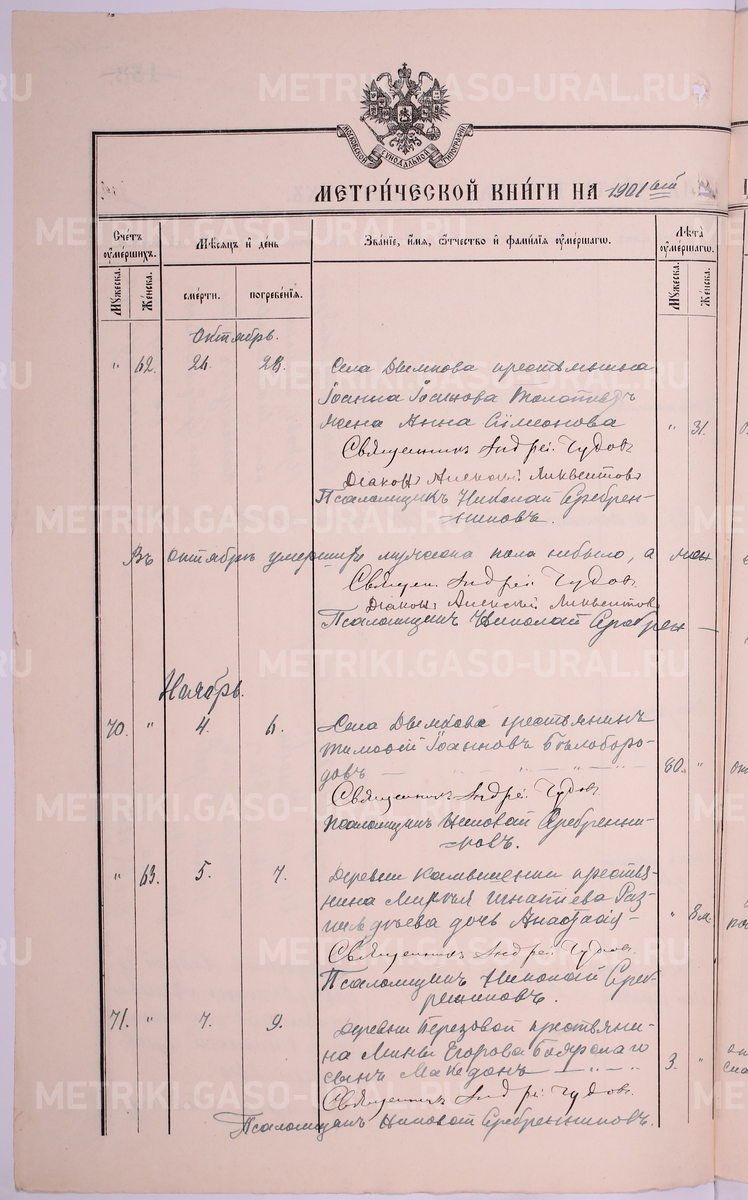 METRIKI.GASO-URAL.RU
МОСКОВСКОЙ СѴНОДАЛЬНОЙ ТИПОГРАФІИ
МЕТРИЧЕСКОЙ КНИГИ НА 1901 ый
Счетъ умершихъ.
Мѣсяцъ и день
Званіе, имя, отчество и фамилія умершаго.
Лѣта умершаго.
Мужеска.
Женска.
смерти.
погребенія.
Мужеска.
Женска.
Октябрь.
" 62. 26. 28. Села Дымкова крестьянина
Іоанна Іоаннова
жена Анна Симеонова " 31.
Священникъ Андрей Чудовъ
Діаконъ Алексій Ликвентовъ
Псаломщикъ Николай Серебрен-
никовъ.
Въ октябрѣ умершихъ мужеска пола небыло, а жен
Священ. Андрей Чудовъ
Діаконъ Алексій Ликвентовъ
Псаломщикъ Николай Серебрен-
Ноябрь.
70. " 4. 6. Села Дымкова крестьянинъ
Тимофей Іоанновъ Бѣлоборо-
довъ 80. "
Священникъ Андрей Чудовъ
Псаломщикъ Николай Серебренни-
ковъ.
" 63. 5. 7. Деревни Камышенки крестья-
нина Игнатіева Раз-
дочь Анастасія " 8 м.
Священникъ Андрей Чудовъ
Псаломщикъ Николай Сереб-
ренниковъ.
71. " 7. 9. Деревни Березовой крестьяни-
на Мины Егорова Боярскаго
сынъ Македонъ 3. "
Священникъ Андрей Чудовъ
Псаломщикъ Николай Серебренниковъ.